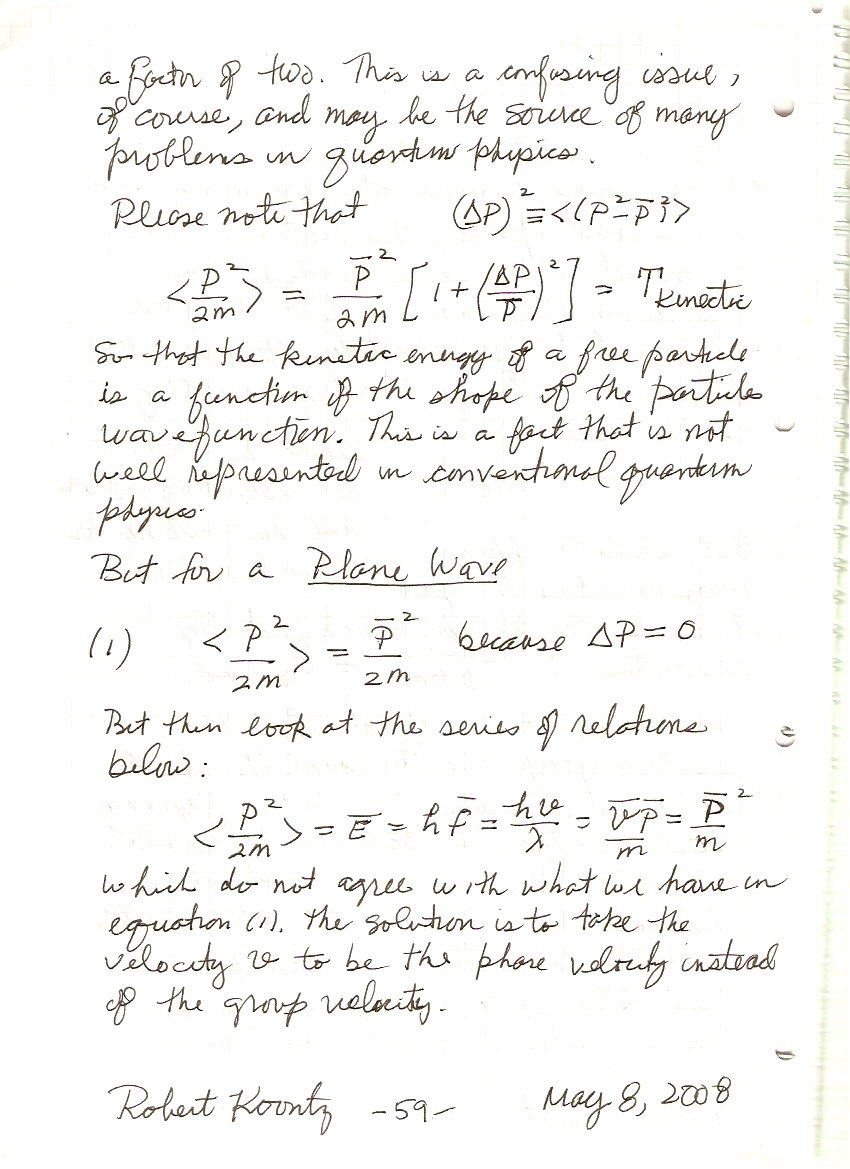 a factor of two. This is a confusing issue,
of course, and may be the source of many
problems in quantum physics.
Please note that (ΔP)² ≡ <(P²-P̄²)>
<P²/2m> = P̄²/2m [1 + (ΔP/P̄)²] = T kinectic
So that the kinetic energy of a free particle
is a function of the shape of the particles
wavefunction. This is a fact that is not
well represented in conventional quantum
physics.
But for a Plane Wave
(1) <P²/2m> = P̄²/2m because ΔP = 0
But then look at the series of relations
below:
<P²/2m> = Ē = h f̄ = hv/λ = v̄P̄/m = P̄²/m
which do not agree with what we have in
equation (1). The solution is to take the
velocity v to be the phase velocity instead
of the group velocity.
Robert Koontz -59- May 8, 2008